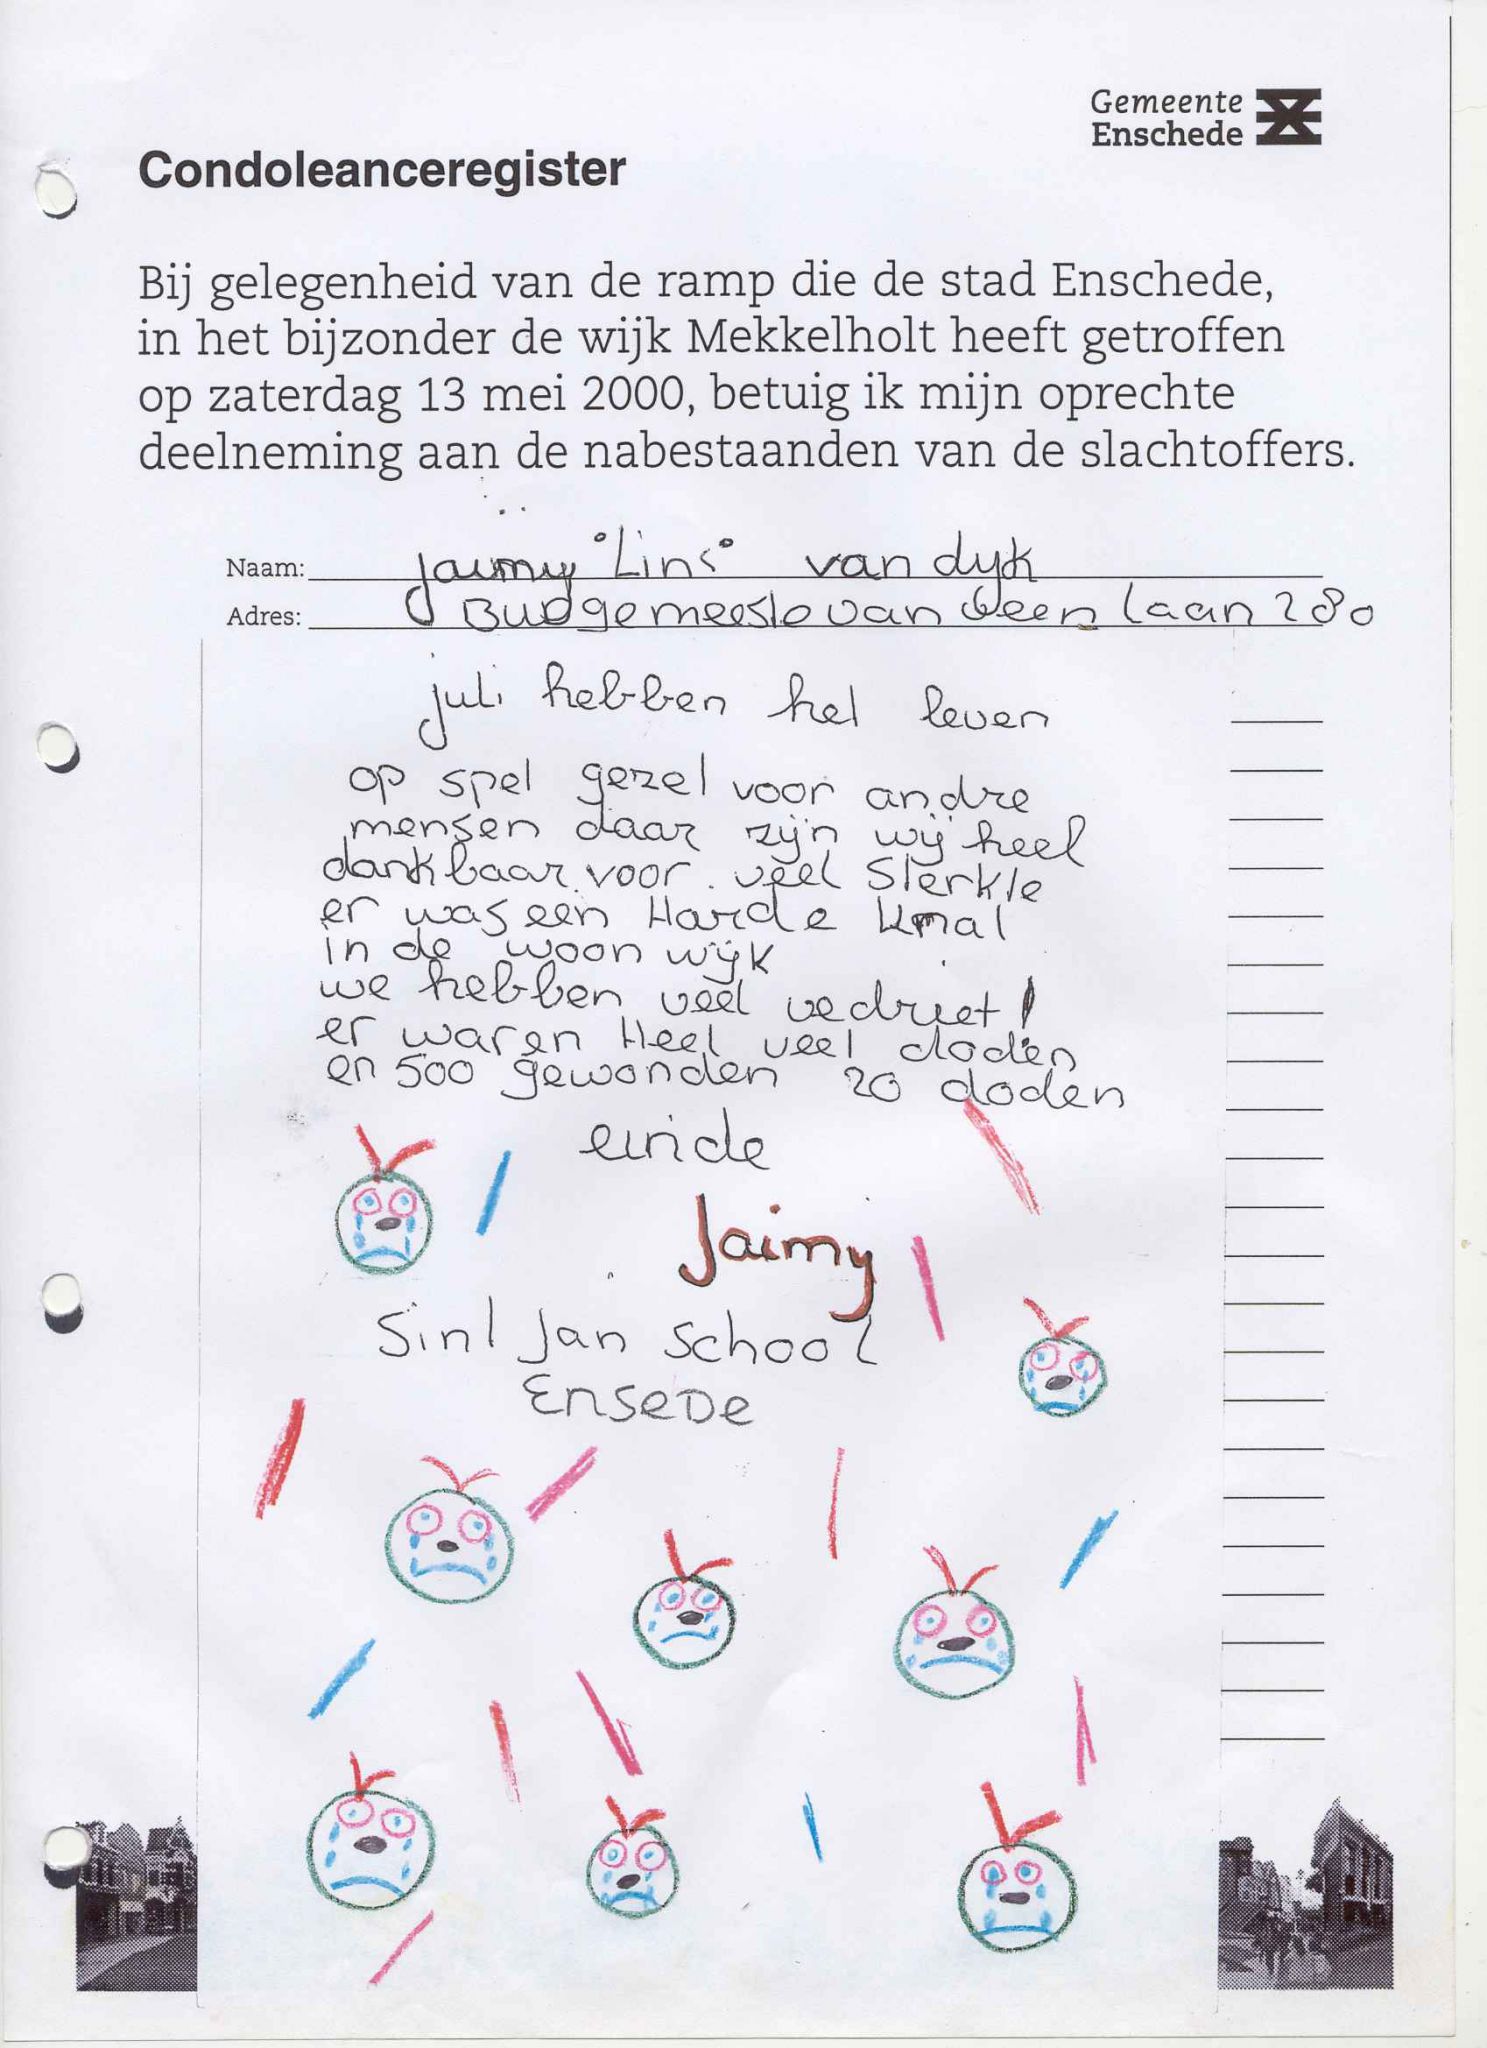 Gemeente
Enschede
Condoleanceregister
Bij gelegenheid van de ramp die de stad Enschede,
in het bijzonder de wijk Mekkelholt heeft getroffen
op zaterdag 13 mei 2000, betuig ik mijn oprechte
deelneming aan de nabestaanden van de slachtoffers.
Naam: jaimy "Lins" van dyk
Adres: Budgemeeste van veen laan 280
juli hebben het leven
op spel gezet voor andre
mensen daar zijn wij heel
dankbaar voor. veel sterkte
er was een Harde knal
in de woon wijk
we hebben veel vedriet!
er waren Heel veel doden
en 500 gewonden 20 doden
einde
Jaimy
Sint Jan School
EnseDe